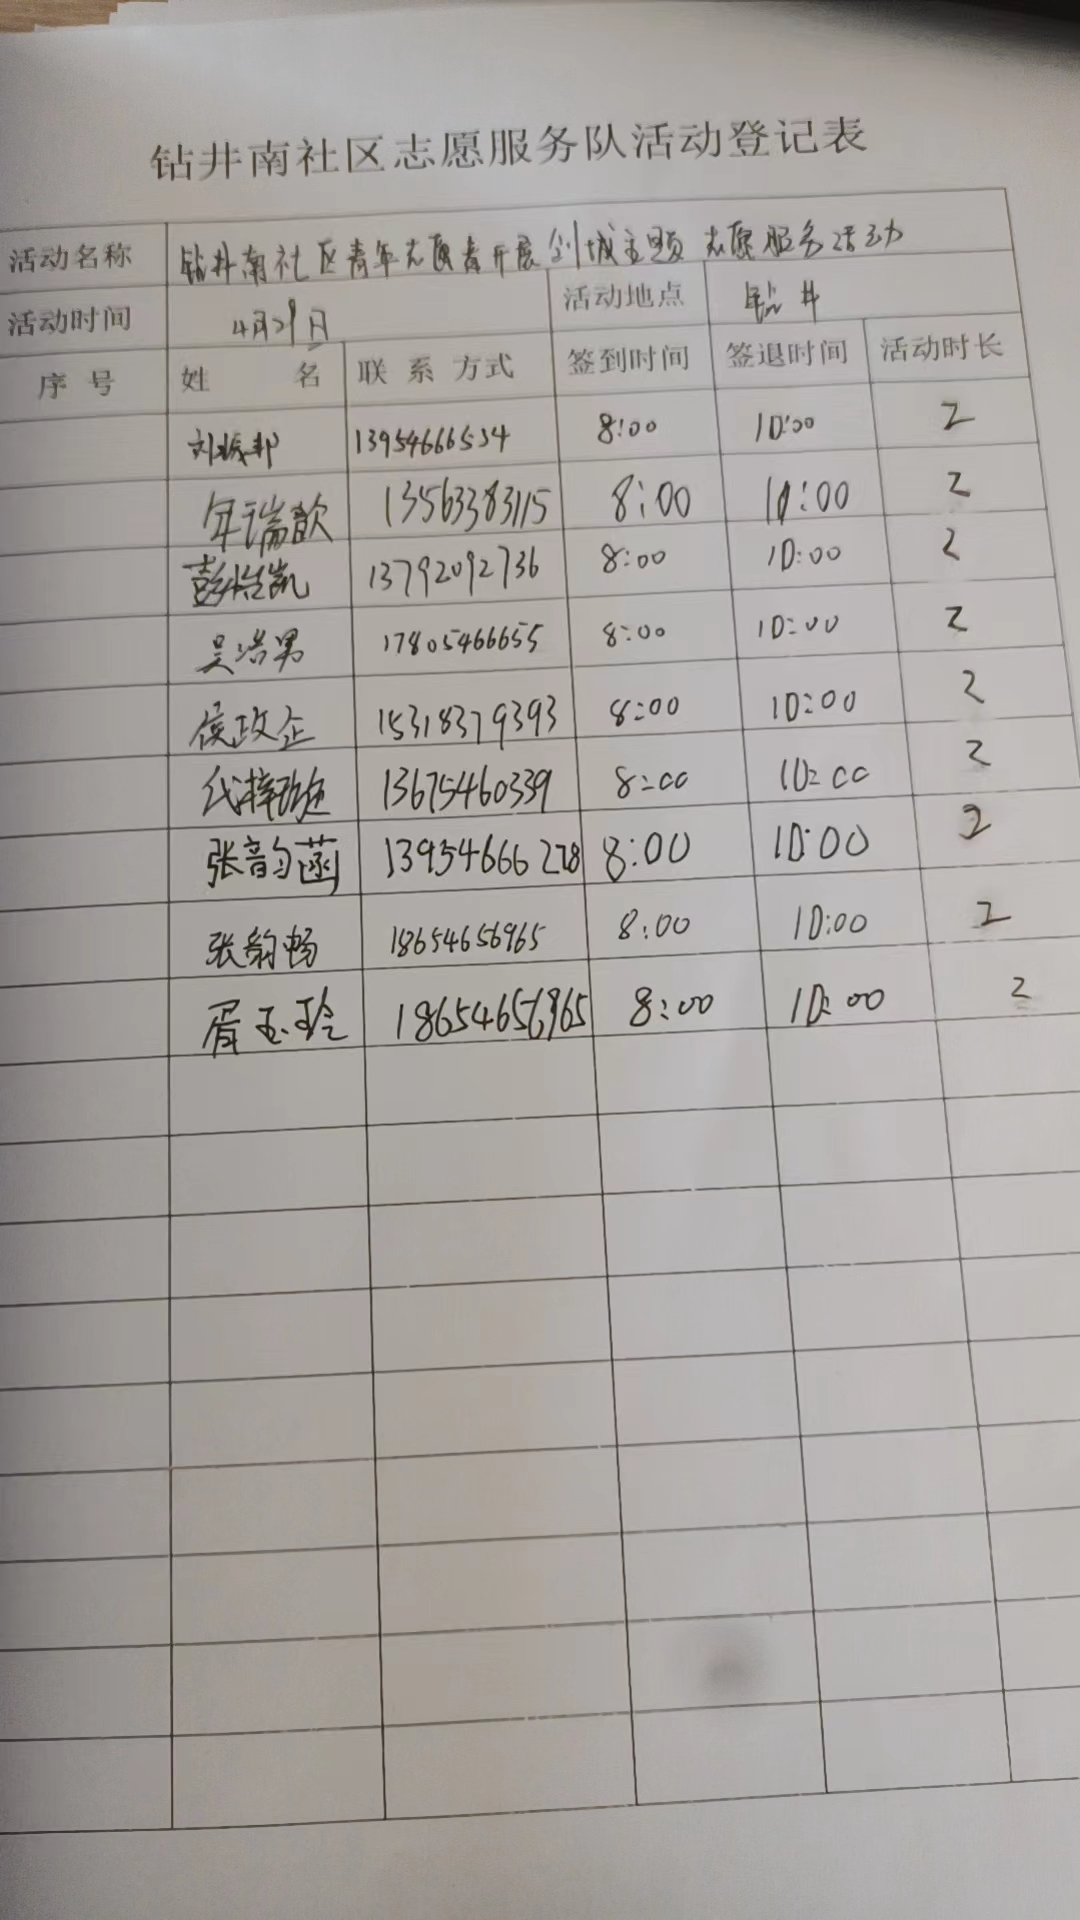 钻井南社区志愿服务队活动登记表
活动名称 钻井南社区青年志愿者开展创城主题志愿服务活动
活动时间 4月29日 活动地点 钻井
序号 姓名 联系方式 签到时间 签退时间 活动时长
刘振邦 13954666534 8:00 10:00 2
年瑞歆 13563383115 8:00 10:00 2
彭浩凯 13792092736 8:00 10:00 2
吴浩男 17805466655 8:00 10:00 2
侯政企 15318379393 8:00 10:00 2
代梓 13675460339 8:00 10:00 2
张韵菡 13954666228 8:00 10:00 2
张韵畅 18654656965 8:00 10:00 2
胥玉玲 18654656965 8:00 10:00 2